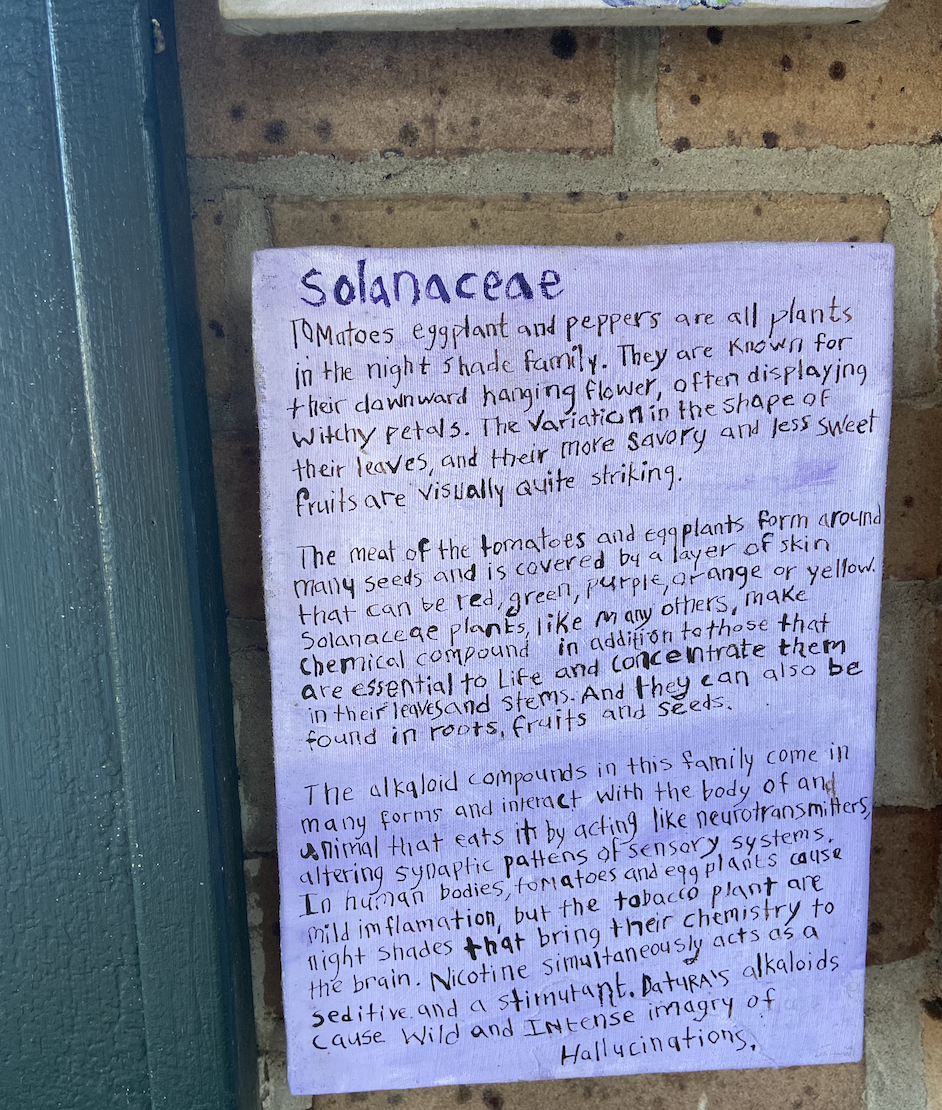 Solanaceae
Tomatoes eggplant and peppers are all plants
in the night shade family. They are known for
their downward hanging flower, often displaying
witchy petals. The variation in the shape of
their leaves, and their more savory and less sweet
fruits are visually quite striking.
The meat of the tomatoes and eggplants form around
many seeds and is covered by a layer of skin
that can be red, green, purple, orange or yellow.
Solanaceae plants, like many others, make
chemical compound in addition to those that
are essential to Life and concentrate them
in their leaves and stems. And they can also be
found in roots, fruits and seeds.
The alkaloid compounds in this family come in
many forms and interact with the body of and
animal that eats it by acting like neurotransmitters,
altering synaptic pattens of sensory systems.
In human bodies, tomatoes and eggplants cause
mild imflamation, but the tobacco plant are
night shades that bring their chemistry to
the brain. Nicotine simultaneously acts as a
seditive and a stimutant. Datura's alkaloids
cause Wild and Intense imagry of
Hallucinations.